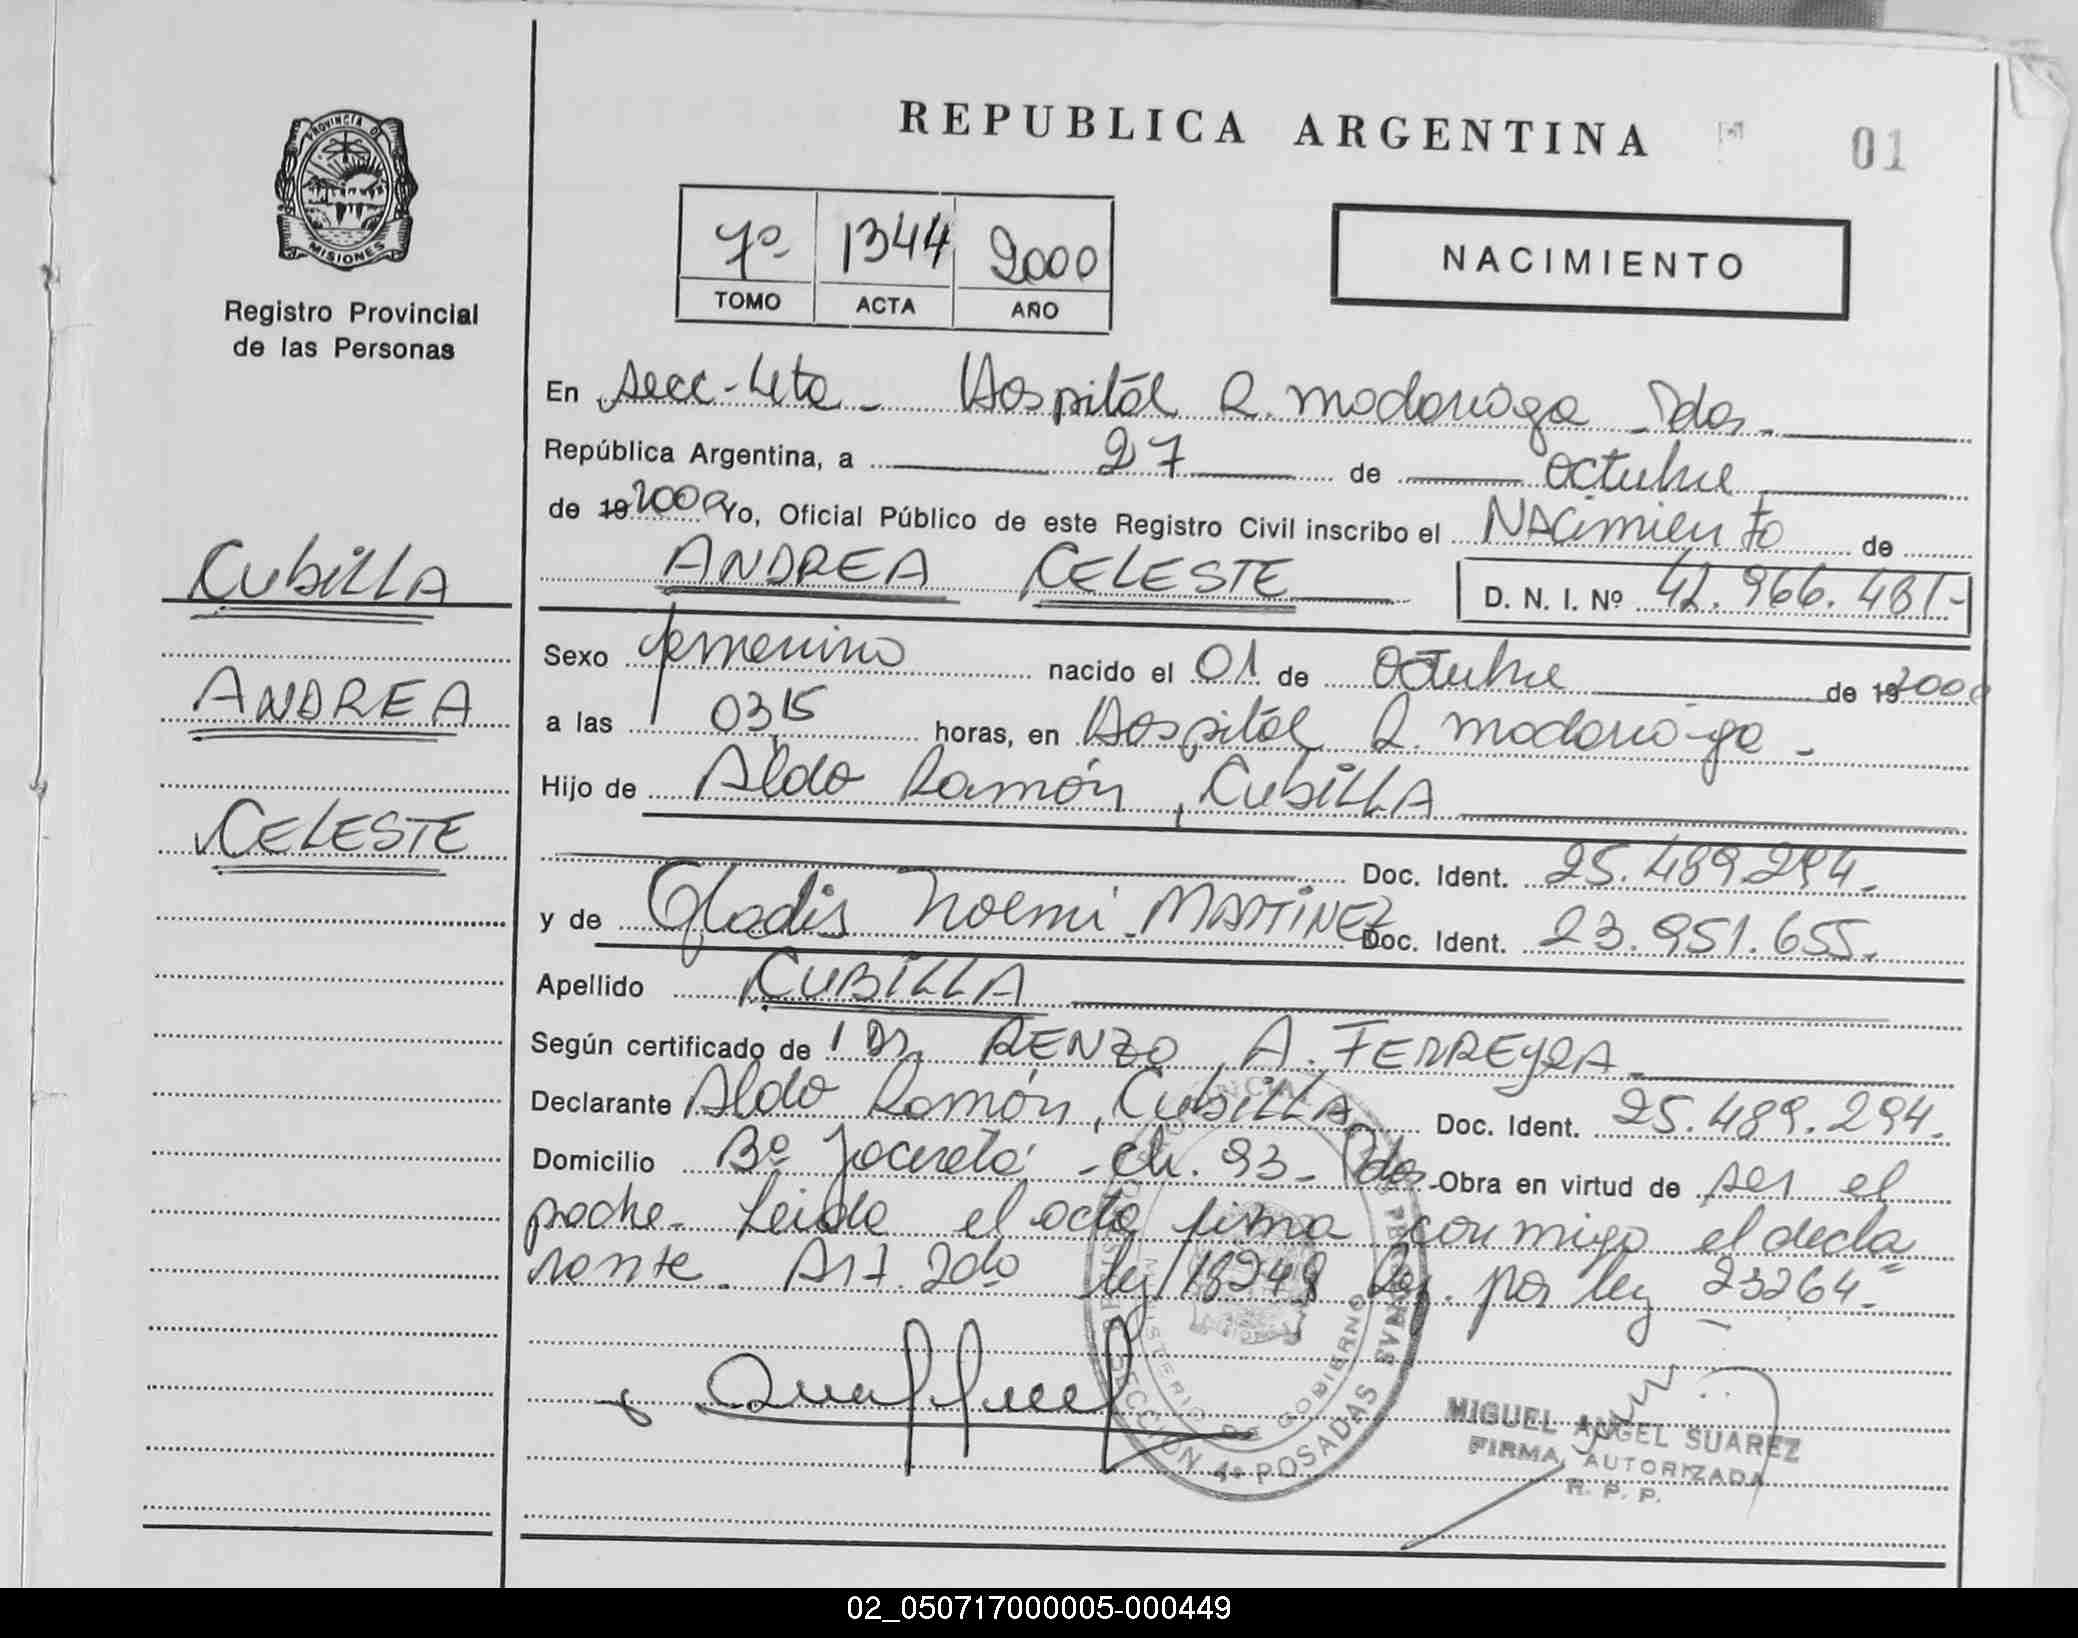 REPUBLICA ARGENTINA
01
PROVINCIA D
MISIONES
Registro Provincial
de las Personas
7º 1344 2000
TOMO ACTA AÑO
NACIMIENTO
En Secc-4ta - Hospital R. Madariaga - Pdas -
República Argentina, a 27 de octubre
de 19 2000 Yo, Oficial Público de este Registro Civil inscribo el NAcimiento de
ANDREA CELESTE
D. N. I. Nº 42.966.481-
CubiLLA
ANDREA
CELESTE
Sexo femenino nacido el 01 de octubre de 19 2000
a las 0315 horas, en Hospital R. Madariaga -
Hijo de Aldo Ramón, CubiLLA
Doc. Ident. 25.489.294.
y de Gladis Noemi MARTINEZ Doc. Ident. 23.951.655.
Apellido CUBILLA
Según certificado de 1 Dr. RENZO A. FERREyRA
Declarante Aldo Ramón, CubiLLA Doc. Ident. 25.489.294.
Domicilio Bº Yacyretá - Ch. 93 - Pdas - Obra en virtud de ser el
padre. Leida el acta firma conmigo el decla
rante. Art. 2do ley 18248 por ley 23264.
MINISTERIO DE GOBIERNO
SECCION 4ª POSADAS
MIGUEL ANGEL SUAREZ
FIRMA AUTORIZADA
R. P. P.
02_050717000005-000449